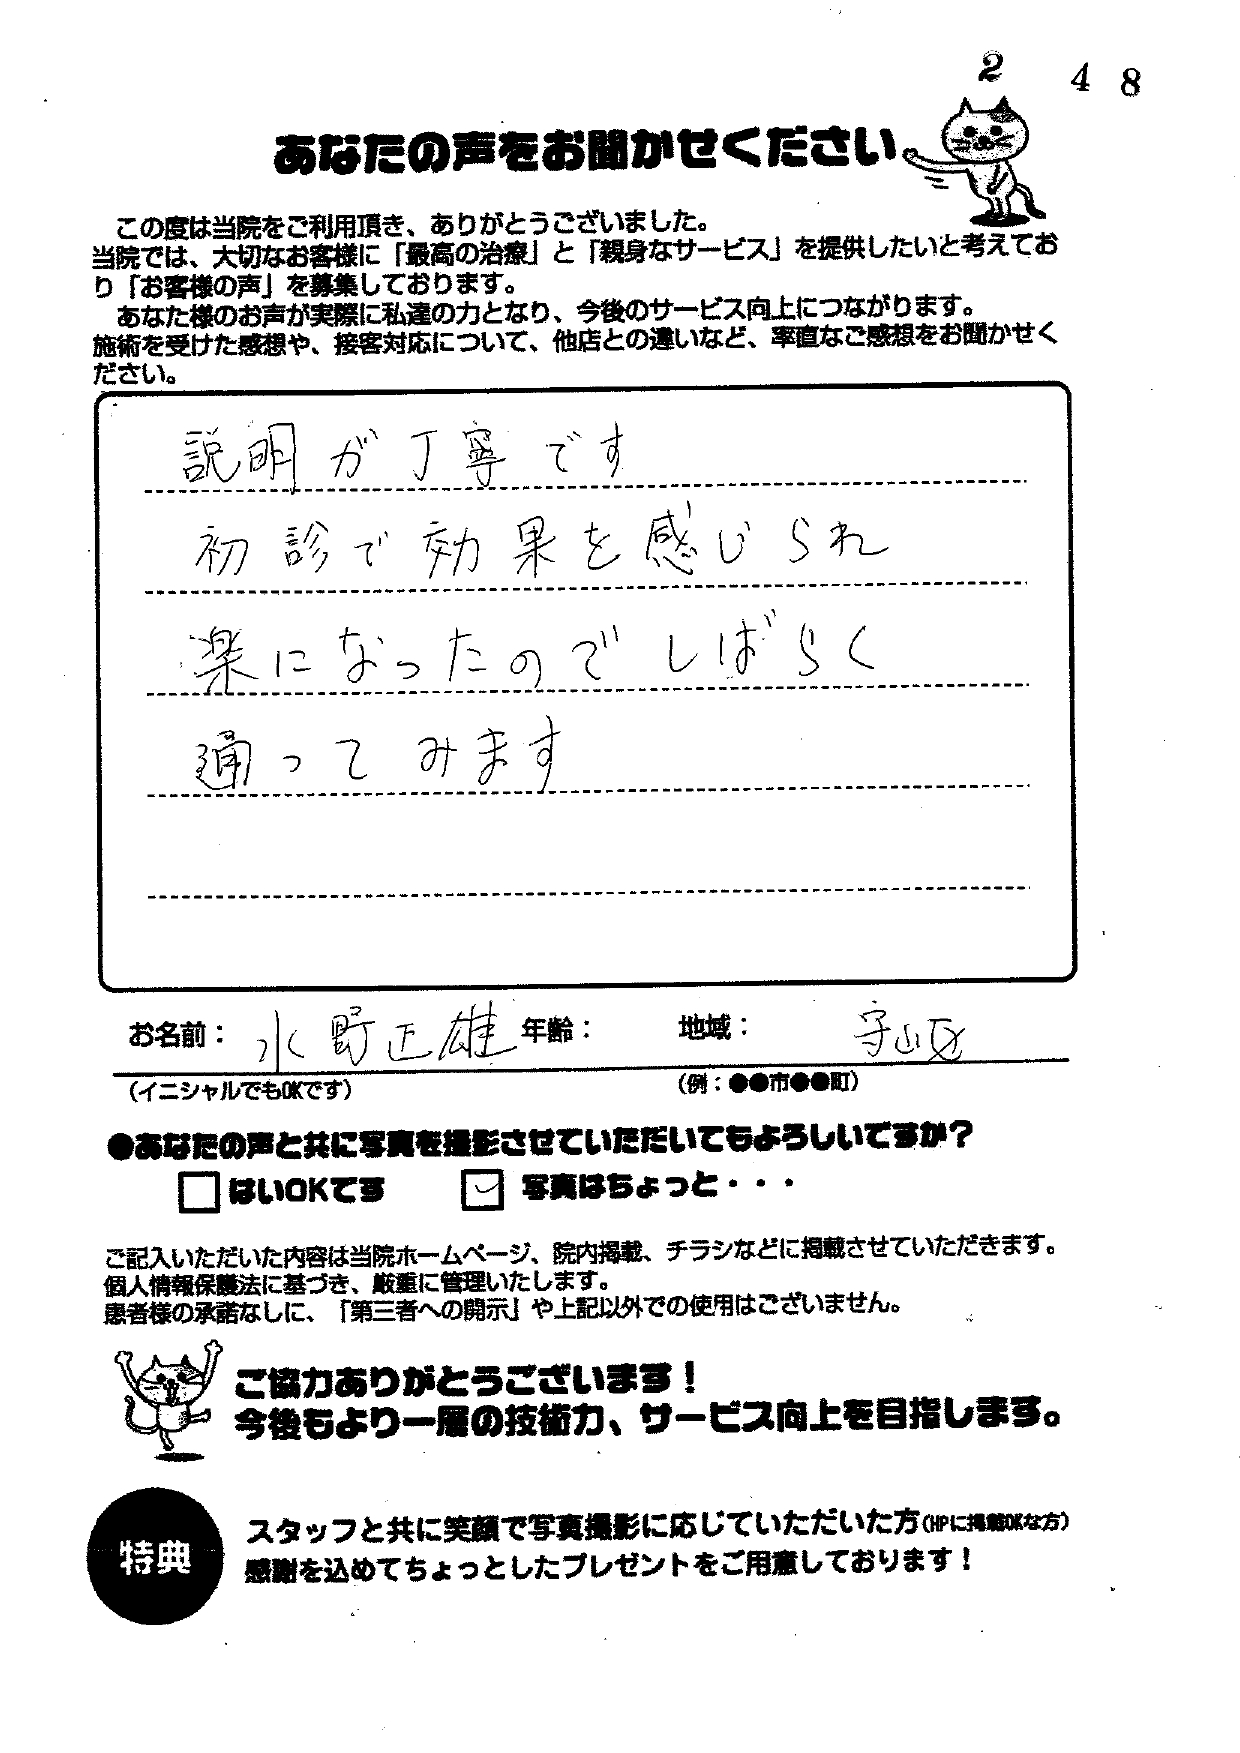 2 4 8
あなたの声をお聞かせください
この度は当院をご利用頂き、ありがとうございました。
当院では、大切なお客様に「最高の治療」と「親身なサービス」を提供したいと考えてお
り「お客様の声」を募集しております。
あなた様のお声が実際に私達の力となり、今後のサービス向上につながります。
施術を受けた感想や、接客対応について、他店との違いなど、率直なご感想をお聞かせく
ださい。
説明が丁寧です
初診で効果を感じられ
楽になったのでしばらく
通ってみます
お名前： 水野正雄 年齢： 地域： 守山区
（イニシャルでもOKです） （例：●●市●●町）
●あなたの声と共に写真を撮影させていただいてもよろしいですか？
はいOKです 写真はちょっと・・・
ご記入いただいた内容は当院ホームページ、院内掲載、チラシなどに掲載させていただきます。
個人情報保護法に基づき、厳重に管理いたします。
患者様の承諾なしに、「第三者への開示」や上記以外での使用はございません。
ご協力ありがとうございます！
今後もより一層の技術力、サービス向上を目指します。
特典
スタッフと共に笑顔で写真撮影に応じていただいた方（HPに掲載OKな方）
感謝を込めてちょっとしたプレゼントをご用意しております！